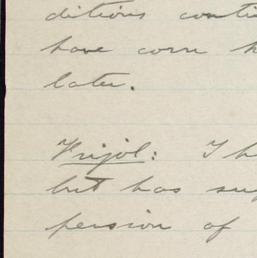 ditions conti
have corn h
later.
Frijol: Th
but has sup
persion of